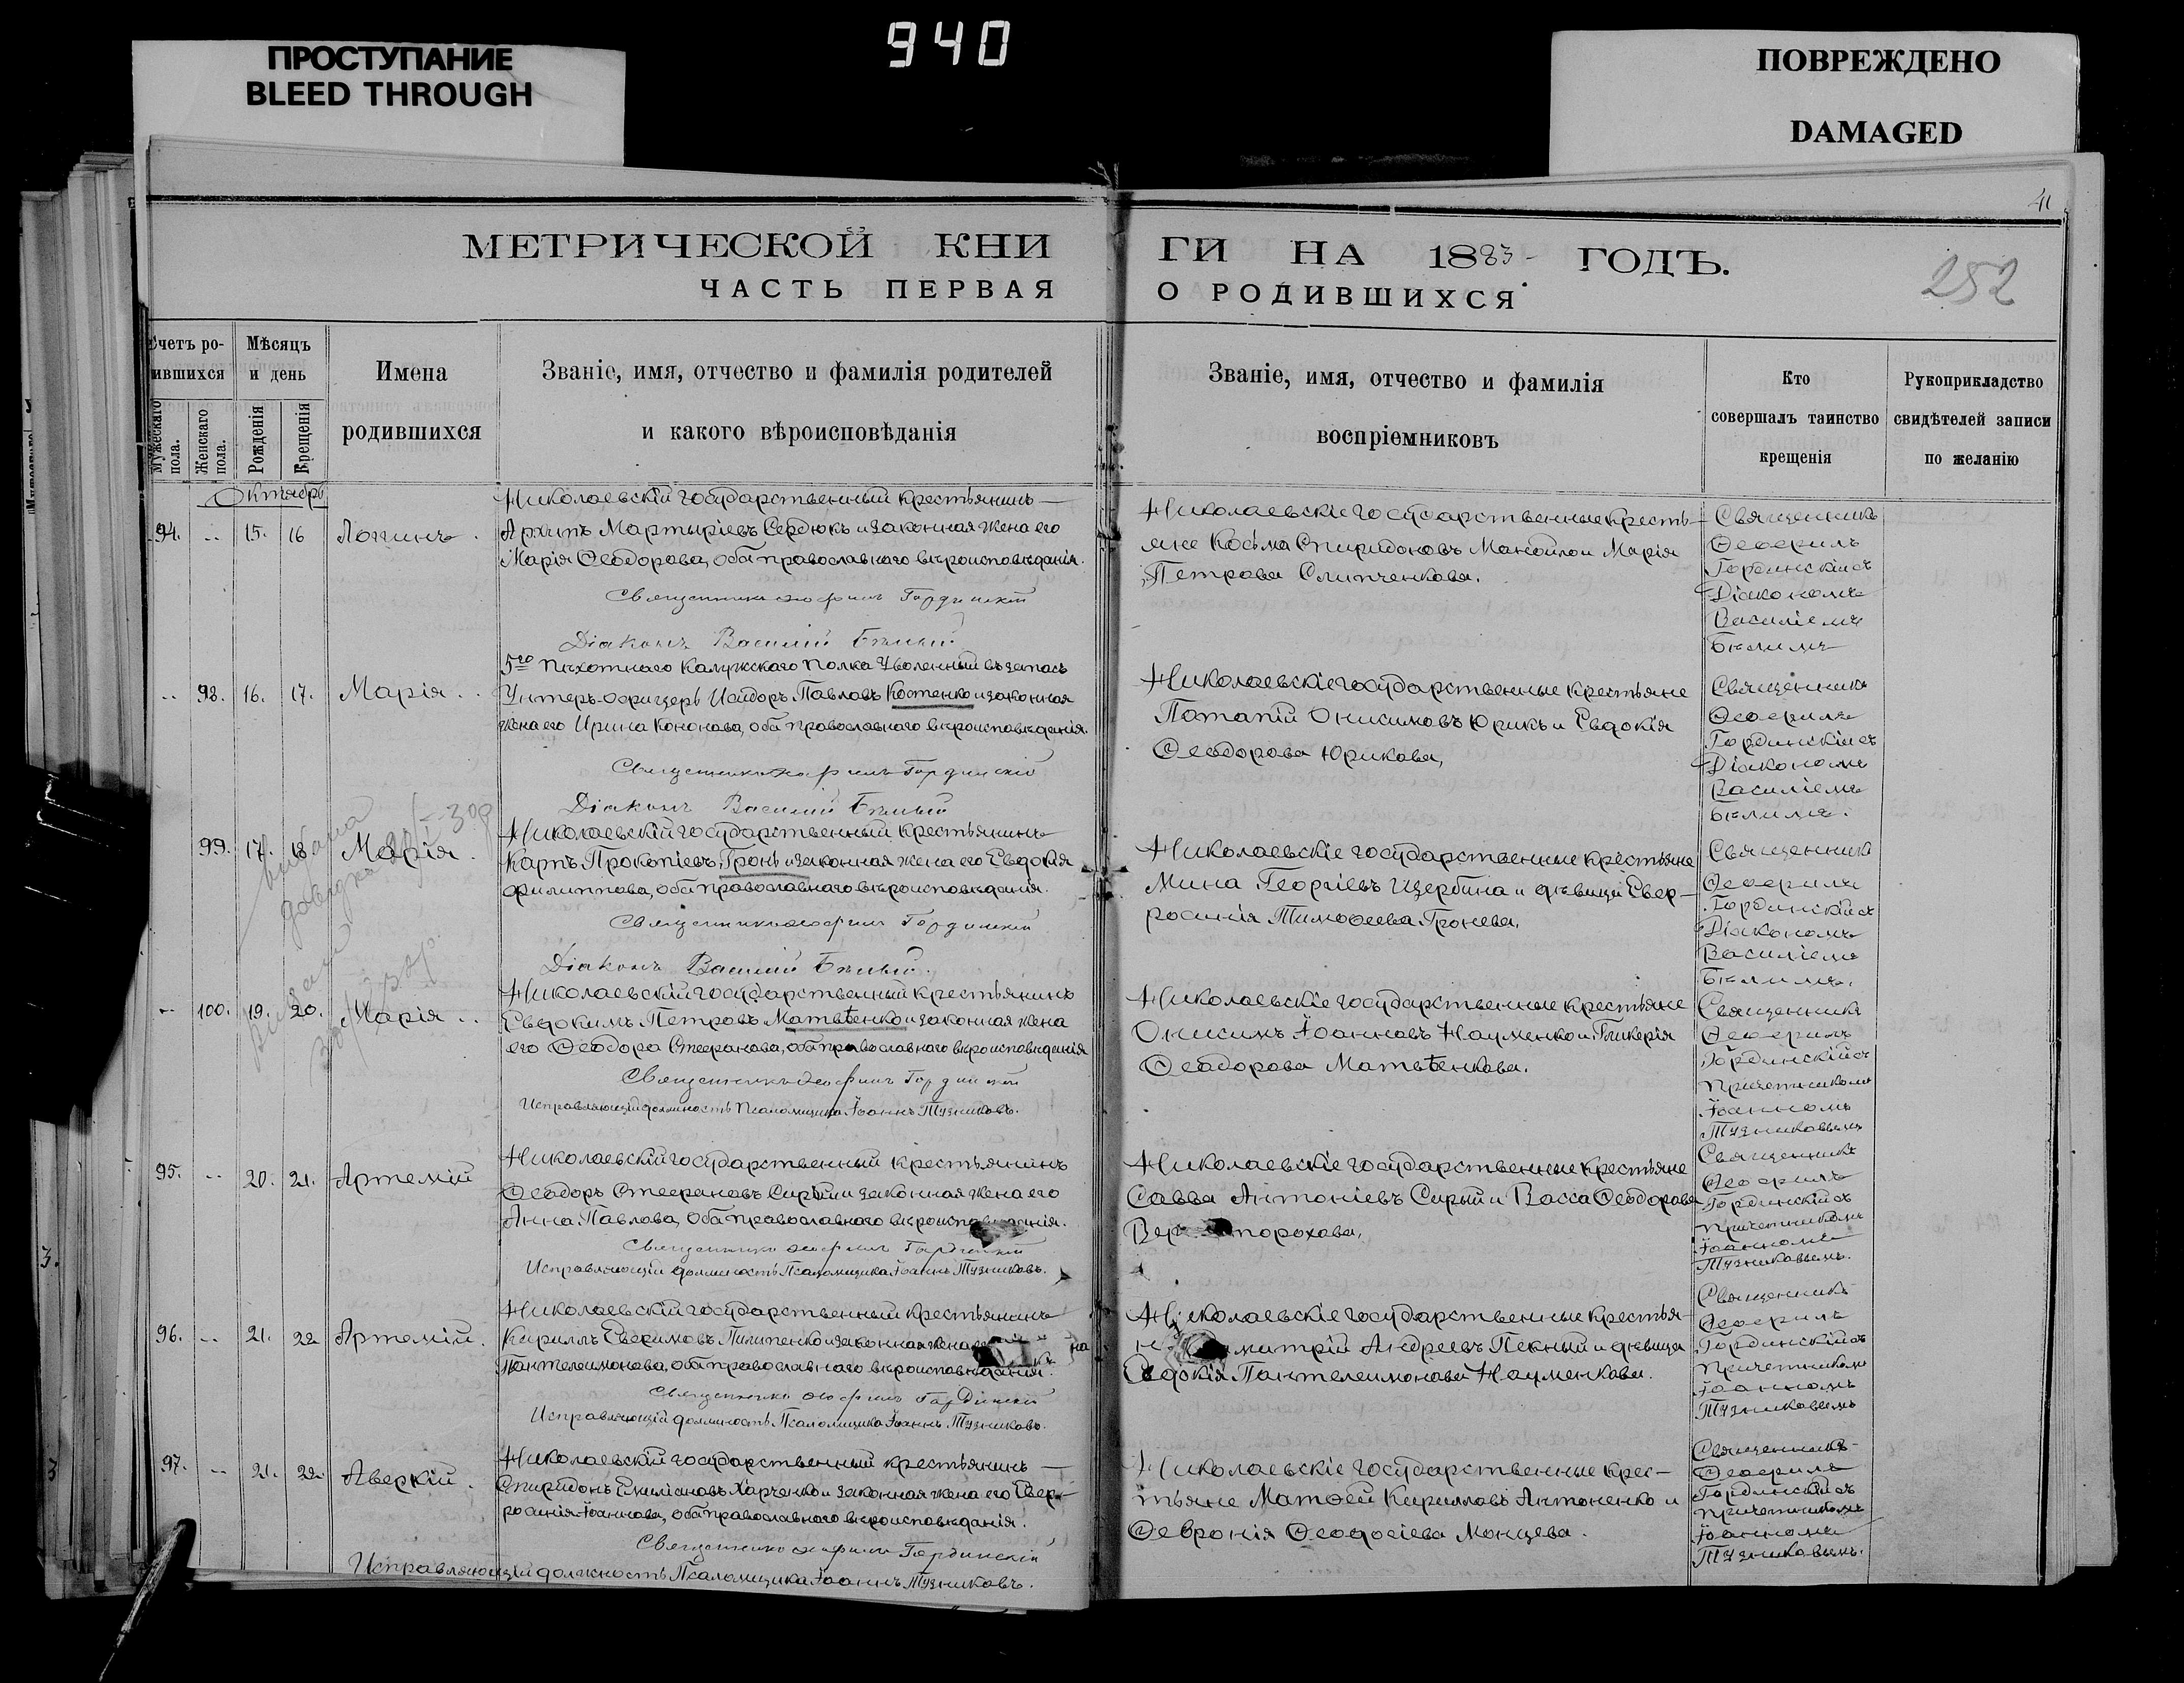 940
ПРОСТУПАНИЕ
BLEED THROUGH
ПОВРЕЖДЕНО
DAMAGED
41
МЕТРИЧЕСКОЙ КНИ
ГИ НА 1883 ГОДЪ.
252
ЧАСТЬ ПЕРВАЯ
О РОДИВШИХСЯ
Счетъ ро-
ившихся
Мужескаго пола.
Женскаго пола.
Мѣсяцъ
и день
Рожденія
Крещенія
Имена
родившихся
Званіе, имя, отчество и фамилія родителей
и какого вѣроисповѣданія
Званіе, имя, отчество и фамилія
воспріемниковъ
Кто
совершалъ таинство
крещенія
Рукоприкладство
свидѣтелей записи
по желанію
Октябрь
94. -- 15. 16 Логинъ.
Николаевскій государственный крестьянинъ
Архипъ Мартиріевъ Сердюкъ и законная жена его
Марія Ѳеодорова, оба православнаго вѣроисповѣданія.
Священникъ Ѳеофилъ Гординскій
Діаконъ Василій Бѣлый
Николаевскіе государственные кресть-
яне Косьма Спиридоновъ Манойло и Марія
Петрова Слипченкова.
Священникъ
Ѳеофилъ
Гординскій съ
Діакономъ
Василіемъ
Бѣлимъ
-- 98. 16. 17. Марія.
5го Пѣхотнаго Калужскаго Полка Уволенный въ запасъ
Унтеръ-офицеръ Исидоръ Павловъ Костенко и законная
жена его Ирина Кононова, оба православнаго вѣроисповѣданія.
Священникъ Ѳеофилъ Гординскій
Діаконъ Василій Бѣлый
Николаевскіе государственные крестьяне
Потапій Онисимовъ Юрикъ и Евдокія
Ѳеодорова Юрикова,
Священникъ
Ѳеофилъ
Гординскій съ
Діакономъ
Василіемъ
Бѣлимъ.
99. 17. 18 Марія.
Николаевскій государственный крестьянинъ
Карпъ Прокопіевъ Гронь и законная жена его Евдокія
Филиппова, оба православнаго вѣроисповѣданія.
Священникъ Ѳеофилъ Гординскій
Діаконъ Василій Бѣлый.
Николаевскіе государственные крестьяне
Мина Георгіевъ Щербина и дѣвица Евфр-
росинія Тимоѳеева Гронева.
Священникъ
Ѳеофилъ
Гординскій съ
Діакономъ
Василіемъ
Бѣлимъ.
-- 100. 19. 20. Марія.
Николаевскій государственный крестьянинъ
Евдокимъ Петровъ Матвѣенко и законная жена
его Ѳеодора Стефанова, оба православнаго вѣроисповѣданія
Священникъ Ѳеофилъ Гординскій
Исправляющій должность Псаломщика Іоаннъ Тузниковъ.
Николаевскіе государственные крестьяне
Онисимъ Іоанновъ Науменко и Гликерія
Ѳеодорова Матвѣенкова.
Священникъ
Ѳеофилъ
Гординскій съ
Причетникомъ
Іоанномъ
Тузниковымъ
95. -- 20. 21. Артемій
Николаевскій государственный крестьянинъ
Ѳеодоръ Стефановъ Сирый и законная жена его
Анна Павлова, оба православнаго
Священникъ Ѳеофилъ Гординскій
Исправляющій должность Псаломщика Іоаннъ Тузниковъ.
Николаевскіе государственные крестьяне
Савва Антоніевъ Сирый и Васса Ѳеодорова
Священникъ
Ѳеофилъ
Гординскій съ
Причетникомъ
Іоанномъ
Тузниковымъ.
96. -- 21. 22 Артемій.
Николаевскій государственный крестьянинъ
Кириллъ Евфимовъ Пилипенко и законная жена
Пантелеимонова, оба православнаго вѣроисповѣданія.
Священникъ Ѳеофилъ Гординскій
Исправляющій должность Псаломщика Іоаннъ Тузниковъ.
Николаевскіе государственные крестья-
Андреевъ Пекный и дѣвица
Евдокія Пантелеимонова Науменкова.
Священникъ
Ѳеофилъ
Гординскій съ
Причетникомъ
Іоанномъ
Тузниковымъ
97. -- 21. 22. Аверкій.
Николаевскій государственный крестьянинъ
Спиридонъ Емиліановъ Харченко и законная жена его Евфр-
росинія Іоаннова, оба православнаго вѣроисповѣданія.
Священникъ Ѳеофилъ Гординскій
Исправляющій должность Псаломщика Іоаннъ Тузниковъ.
Николаевскіе государственные крес-
тьяне Матѳей Кирилловъ Антоненко и
Ѳевронія Ѳеодосіева Монцева.
Священникъ
Ѳеофилъ
Гординскій съ
Причетникомъ
Іоанномъ
Тузниковымъ.